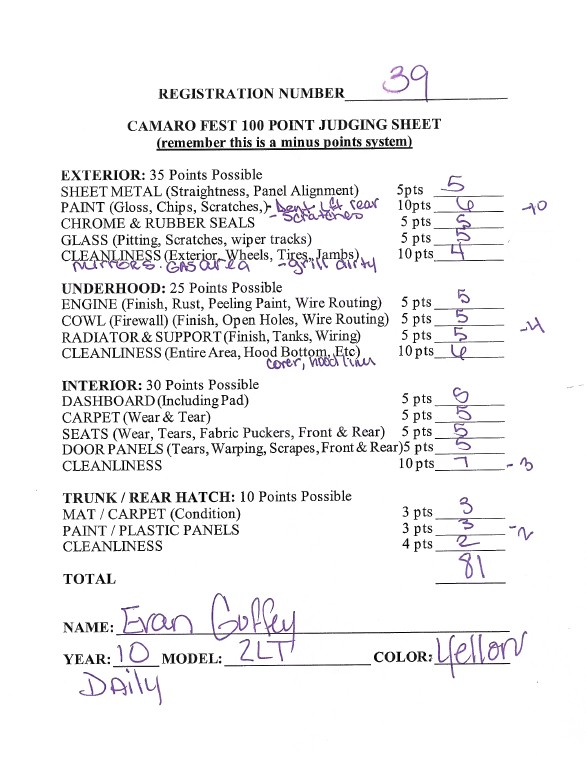 REGISTRATION NUMBER 39
CAMARO FEST 100 POINT JUDGING SHEET
(remember this is a minus points system)
EXTERIOR: 35 Points Possible
SHEET METAL (Straightness, Panel Alignment) 5pts 5
PAINT (Gloss, Chips, Scratches,) - Dent lft rear 10pts 6 -10
- Scratches
CHROME & RUBBER SEALS 5 pts 5
GLASS (Pitting, Scratches, wiper tracks) 5 pts 5
CLEANLINESS (Exterior, Wheels, Tires, Jambs) 10 pts 4
mirrors. GAS area - grill dirty
UNDERHOOD: 25 Points Possible
ENGINE (Finish, Rust, Peeling Paint, Wire Routing) 5 pts 5
COWL (Firewall) (Finish, Open Holes, Wire Routing) 5 pts 5
RADIATOR & SUPPORT (Finish, Tanks, Wiring) 5 pts 5 -4
CLEANLINESS (Entire Area, Hood Bottom, Etc) 10 pts 6
cover, hood linr
INTERIOR: 30 Points Possible
DASHBOARD (Including Pad) 5 pts 5
CARPET (Wear & Tear) 5 pts 5
SEATS (Wear, Tears, Fabric Puckers, Front & Rear) 5 pts 5
DOOR PANELS (Tears, Warping, Scrapes, Front & Rear) 5 pts 5
CLEANLINESS 10 pts 7 - 3
TRUNK / REAR HATCH: 10 Points Possible
MAT / CARPET (Condition) 3 pts 3
PAINT / PLASTIC PANELS 3 pts 3 -2
CLEANLINESS 4 pts 2
TOTAL 81
NAME: Evan Guffey
YEAR: 10 MODEL: 2LT COLOR: Yellow
DAily